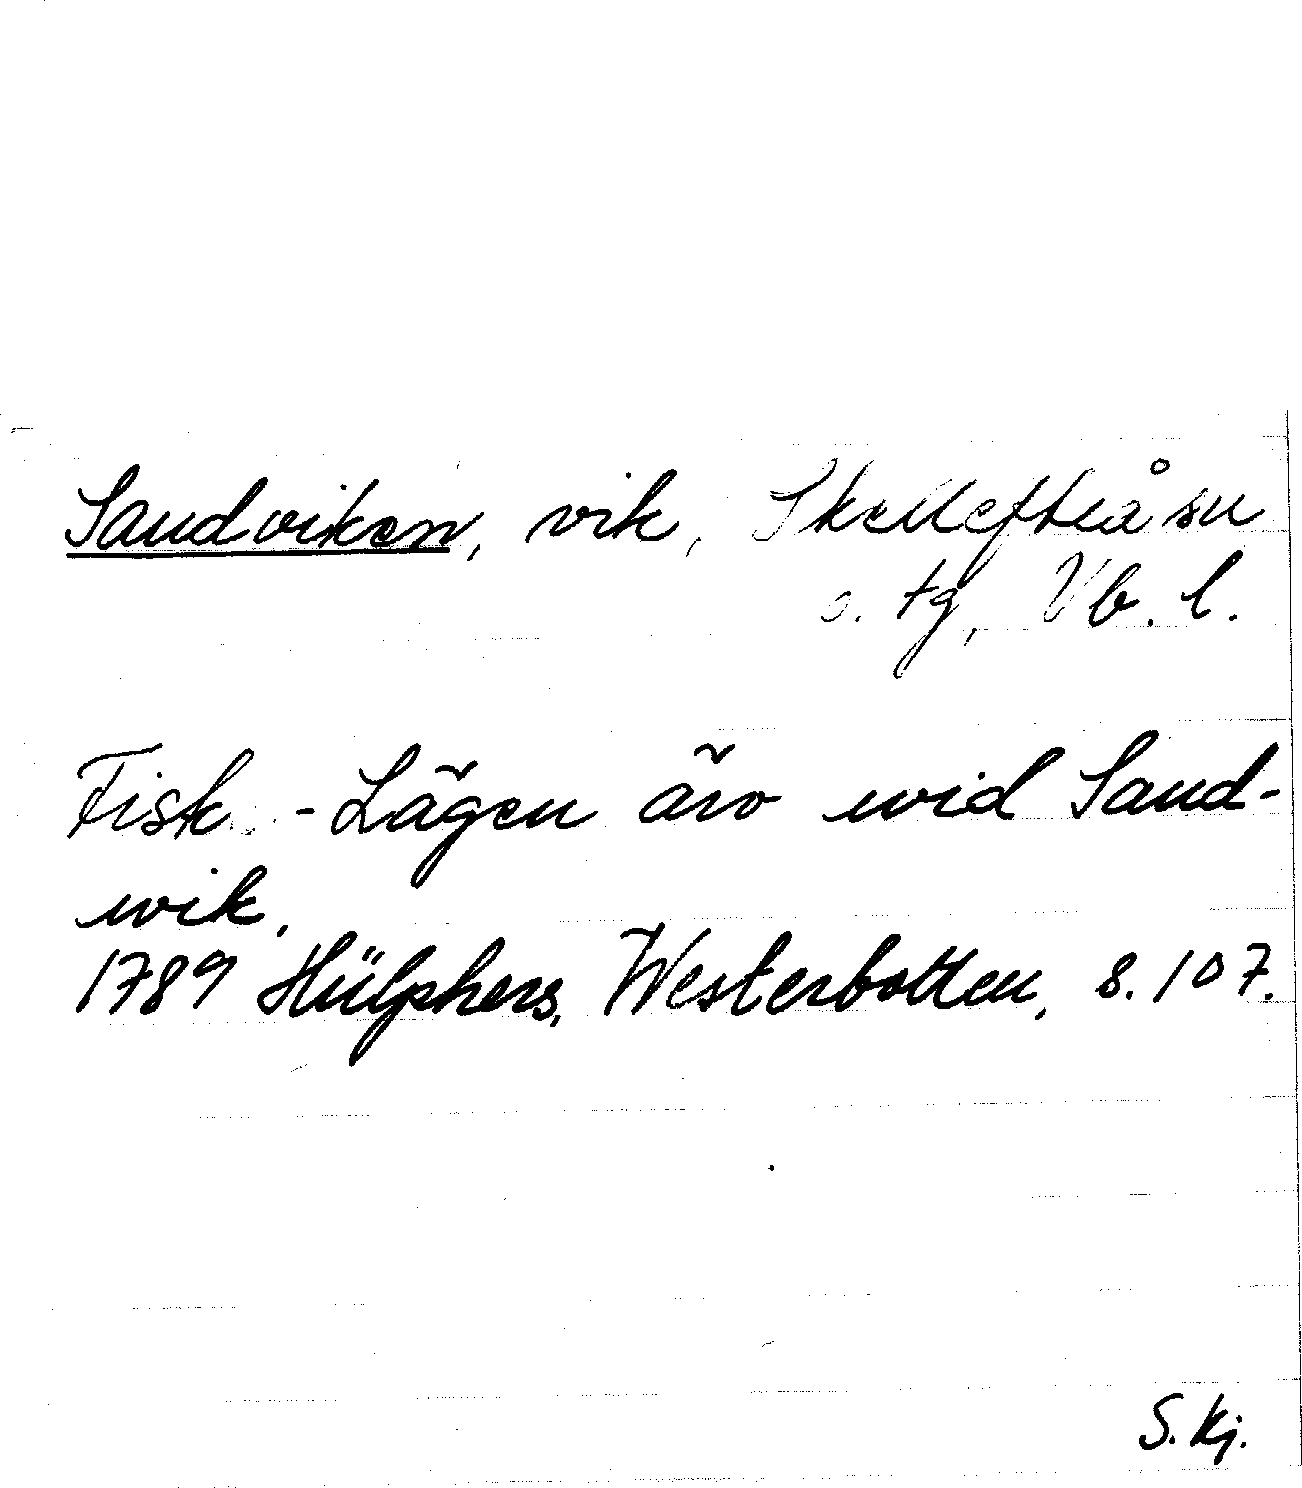 Sandviken, vik, Skellefteå sn
o. tg, Vb. l.
Fisk-Lägen äro wid Sand-
wik.
1789 Hülphers, Westerbotten, s. 107.
S. Kj.